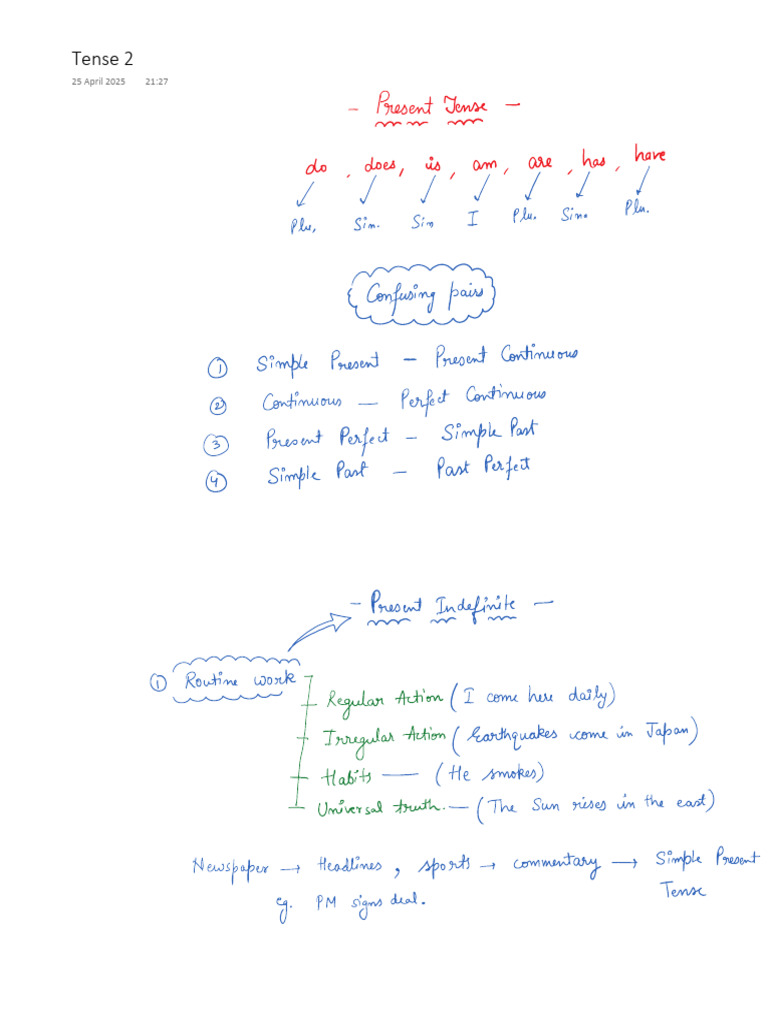 Tense 2
25 April 2025 21:27
- Present Tense -
do, does, is, am, are, has, have
Plu. Sin. Sin I Plu. Sin. Plu.
Confusing pairs
① Simple Present - Present Continuous
② Continuous - Perfect Continuous
③ Present Perfect - Simple Past
④ Simple Past - Past Perfect
- Present Indefinite -
① Routine work
Regular Action (I come here daily)
Irregular Action (Earthquakes come in Japan)
Habits - (He smokes)
Universal truth. - (The Sun rises in the east)
Newspaper → Headlines, sports → commentary → Simple Present
Tense
eg. PM signs deal.